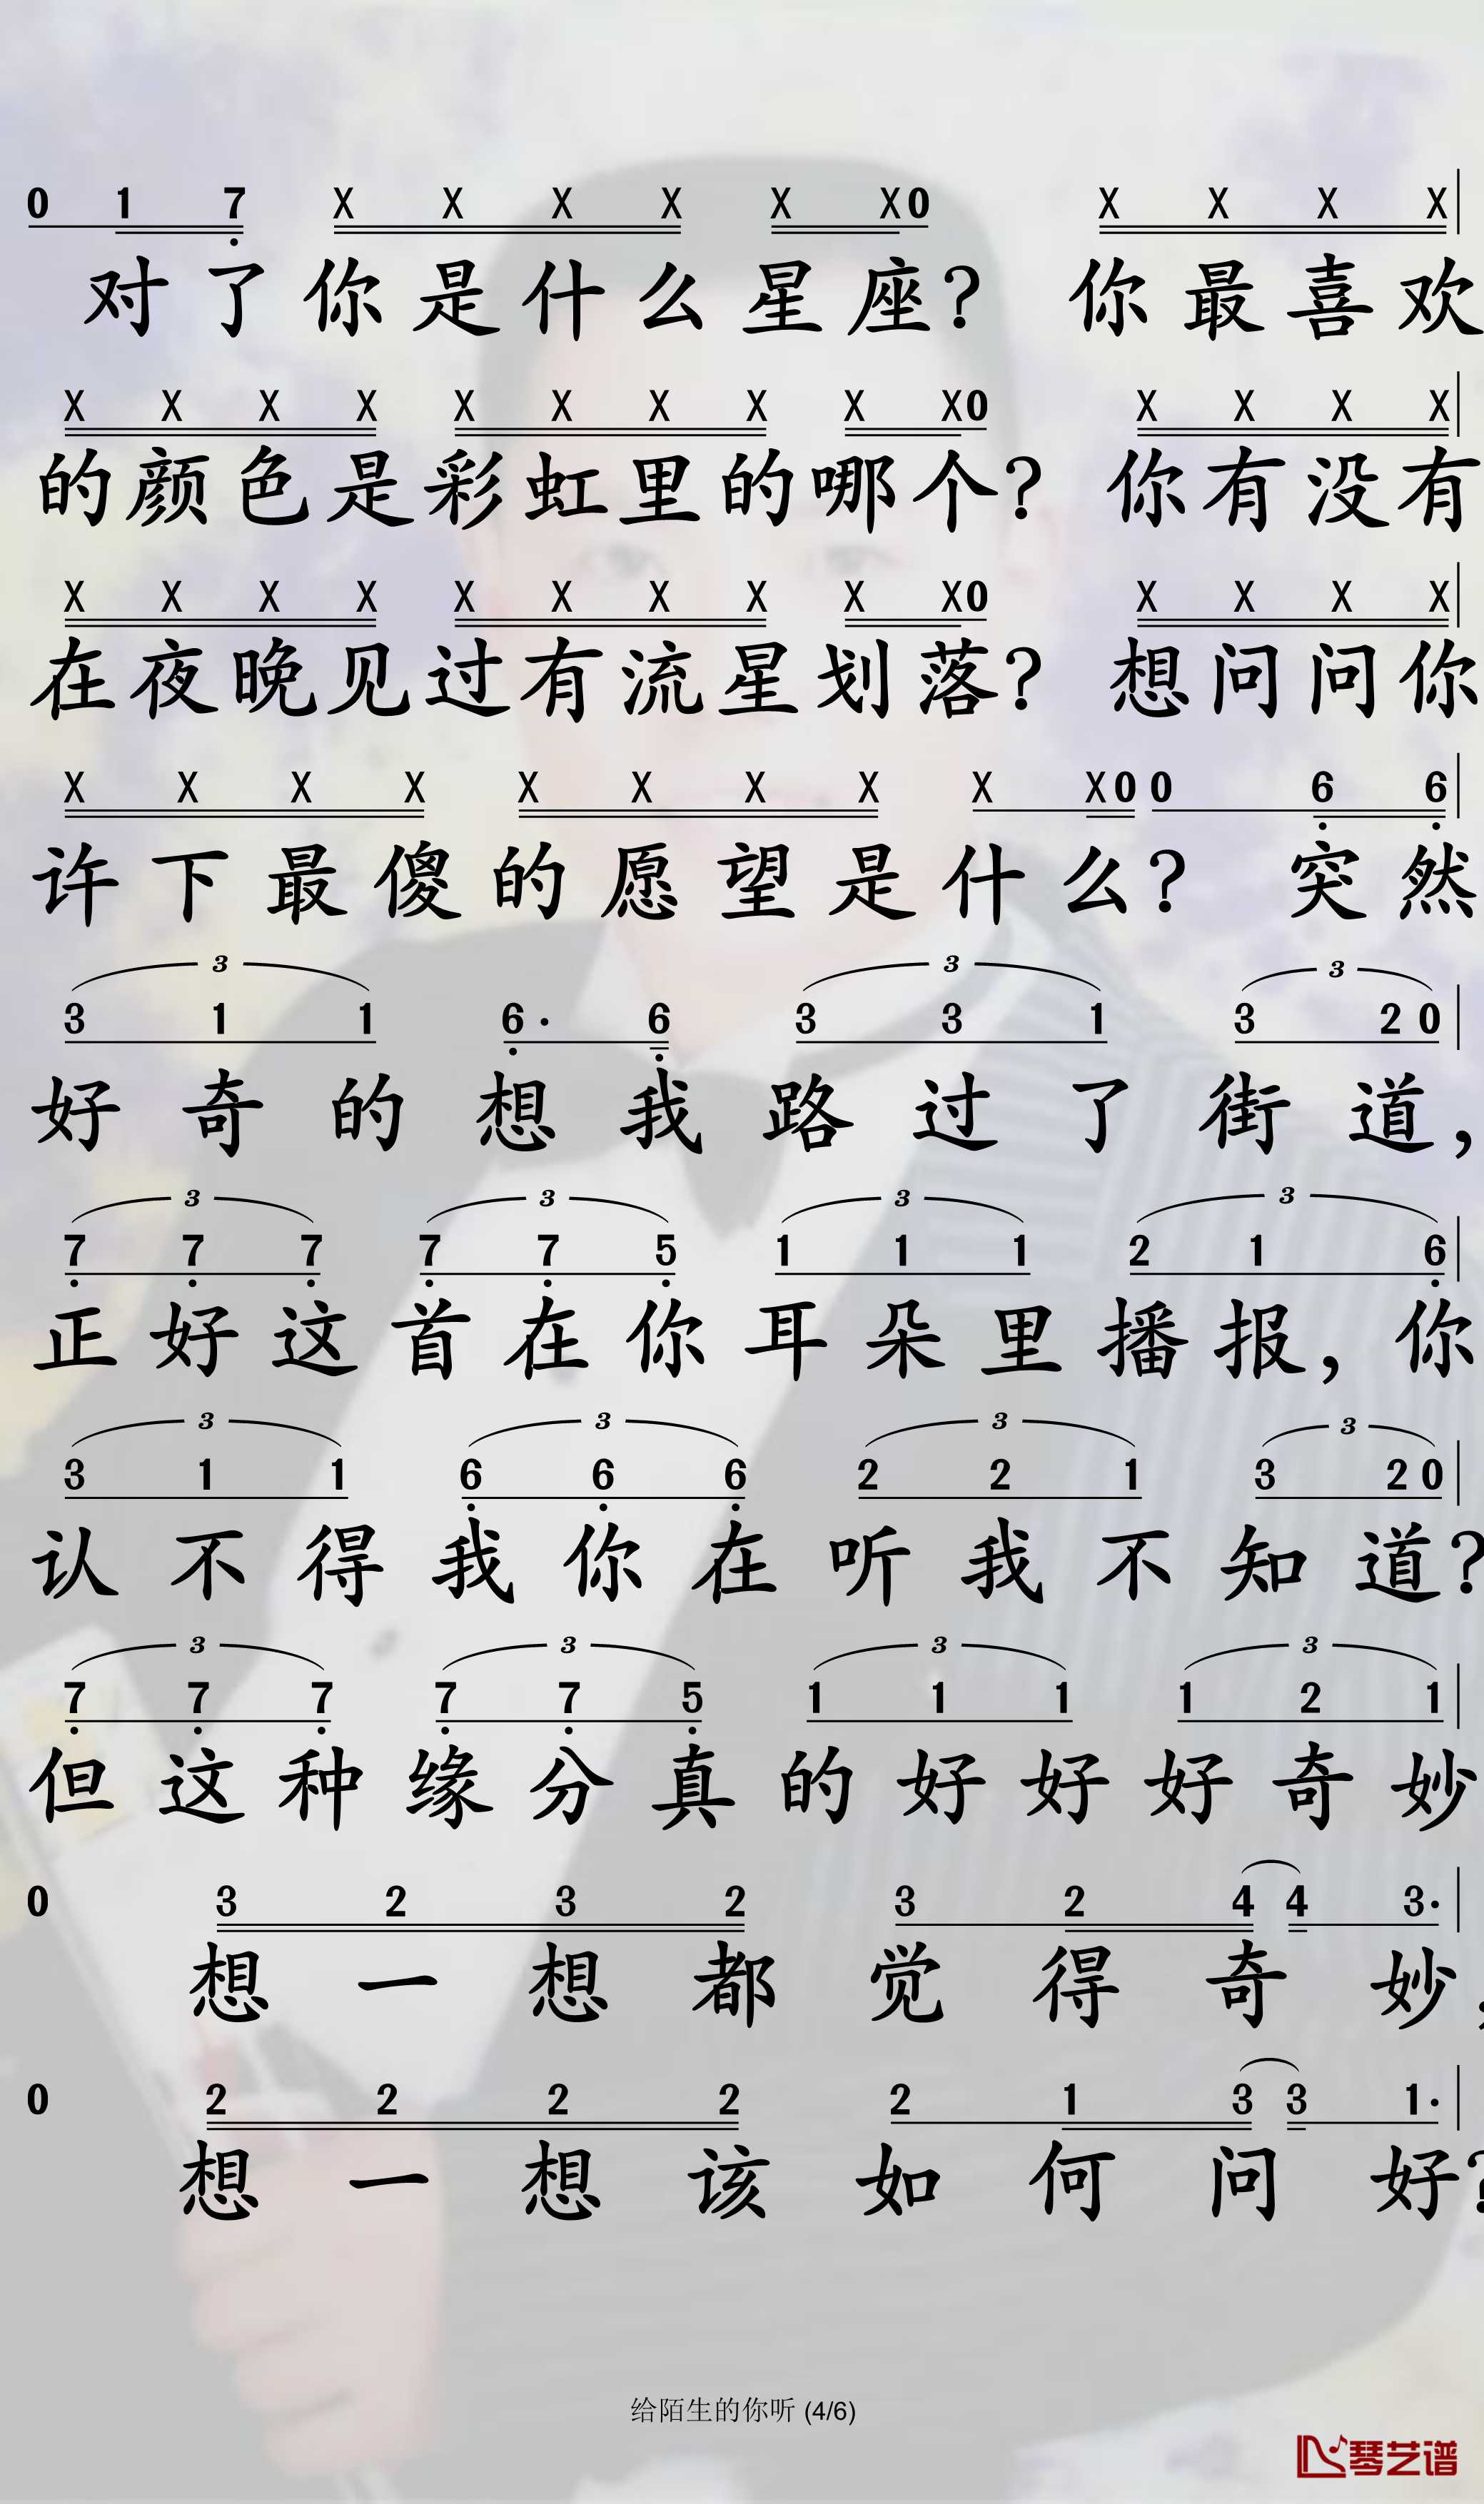 0 1 7 X X X X X X 0 X X X X
对了你是什么星座? 你最喜欢
X X X X X X X X X X 0 X X X X
的颜色是彩虹里的哪个? 你有没有
X X X X X X X X X X 0 X X X X
在夜晚见过有流星划落? 想问问你
X X X X X X X X X X 0 0 6 6
许下最傻的愿望是什么? 突然
3 3 3
3 1 1 6· 6 3 3 1 3 2 0
好奇的想我路过了街道,
3 3 3 3
7 7 7 7 7 5 1 1 1 2 1 6
正好这首在你耳朵里播报, 你
3 3 3 3
3 1 1 6 6 6 2 2 1 3 2 0
认不得我你在听我不知道?
3 3 3 3
7 7 7 7 7 5 1 1 1 1 2 1
但这种缘分真的好好好奇妙
0 3 2 3 2 3 2 4 4 3·
想一想都觉得奇妙,
0 2 2 2 2 2 1 3 3 1·
想一想该如何问好?
给陌生的你听 (4/6)
琴艺谱